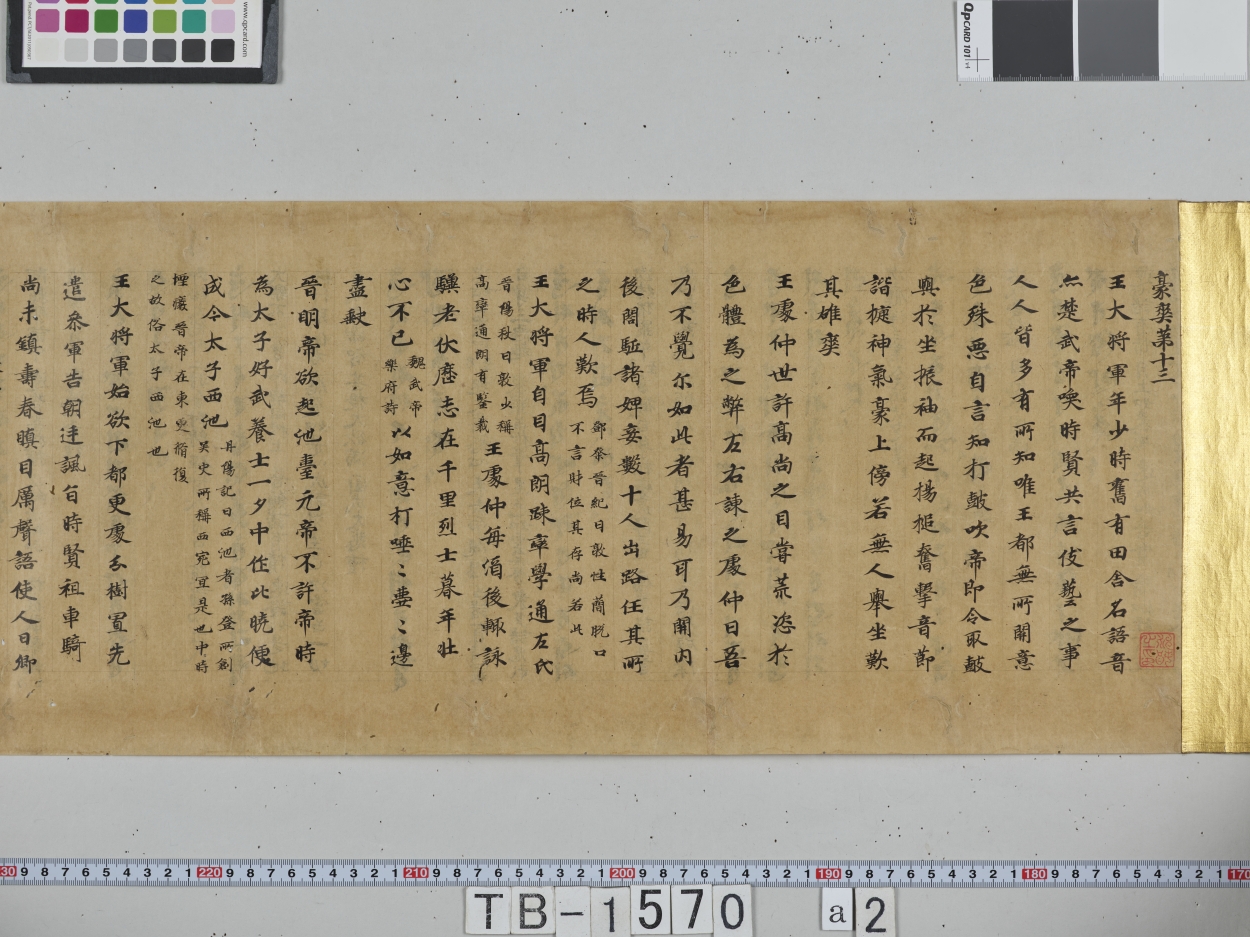 豪爽第十三
王大將軍年少時舊有田舍名語音
亦楚武帝喚時賢共言伎藝之事
人人皆多有所知唯王都無所關意
色殊惡自言知打鼓吹帝即令取鼓
與於坐振袖而起揚槌奮擊音節
諧捷神氣豪上傍若無人舉坐歎
其雄爽
王處仲世許高尚之目嘗荒恣於
色體為之弊左右諫之處仲曰吾
乃不覺尓如此者甚易耳乃開内
後閤駈諸婢妾數十人出路任其所
之時人歎焉 鄧粲晉紀曰敦性蕳脱口
不言財位其存尚若此
王大將軍自目高朗踈率學通左氏
晉陽秋曰敦少稱
高率通朗有鑒裁 王處仲每酒後輙詠
驥老伏歷志在千里烈士暮年壯
心不已 魏武帝
樂府詩 以如意打唾〻壺〻邊
盡缺
晉明帝欲起池臺元帝不許帝時
為太子好武養士一夕中作比曉便
成今太子西池 丹陽記曰西池者孫登所創
吳史所稱西宛宜是也中時
堙廢晉帝在東更脩復
之故俗太子西池也
王大將軍始欲下都更處分樹置先
遣叅軍告朝廷諷旨時賢祖車騎
尚未鎮壽春瞋目厲聲語使人曰卿
www.qpcard.com
QpCARD 101 v4
30 9 8 7 6 5 4 3 2 1 220 9 8 7 6 5 4 3 2 1 210 9 8 7 6 5 4 3 2 1 200 9 8 7 6 5 4 3 2 1 190 9 8 7 6 5 4 3 2 1 180 9 8 7 6 5 4 3 2 1 170
TB-1570 a2